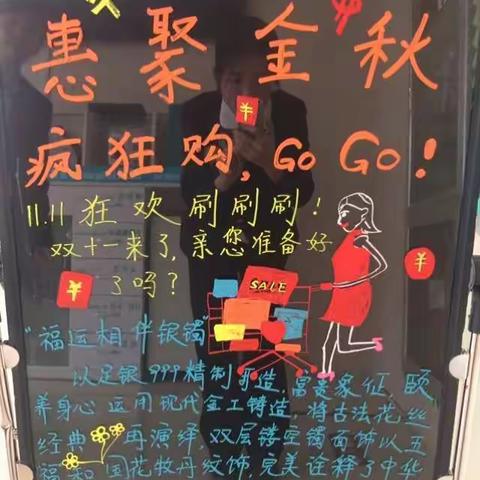 惠聚金秋
疯狂购,GO GO!
¥
11.11狂欢刷刷刷!
双十一来了,亲您准备好
了吗?
¥
¥
SALE
"福运相伴银镯"
以足银999精制哥造 富贵象征 颐
养身心 运用现代金工铸造,将古法花丝
经典 再演绎,双层镂空镯面饰以五
福和 国花牡丹纹饰,完美诠释了中华